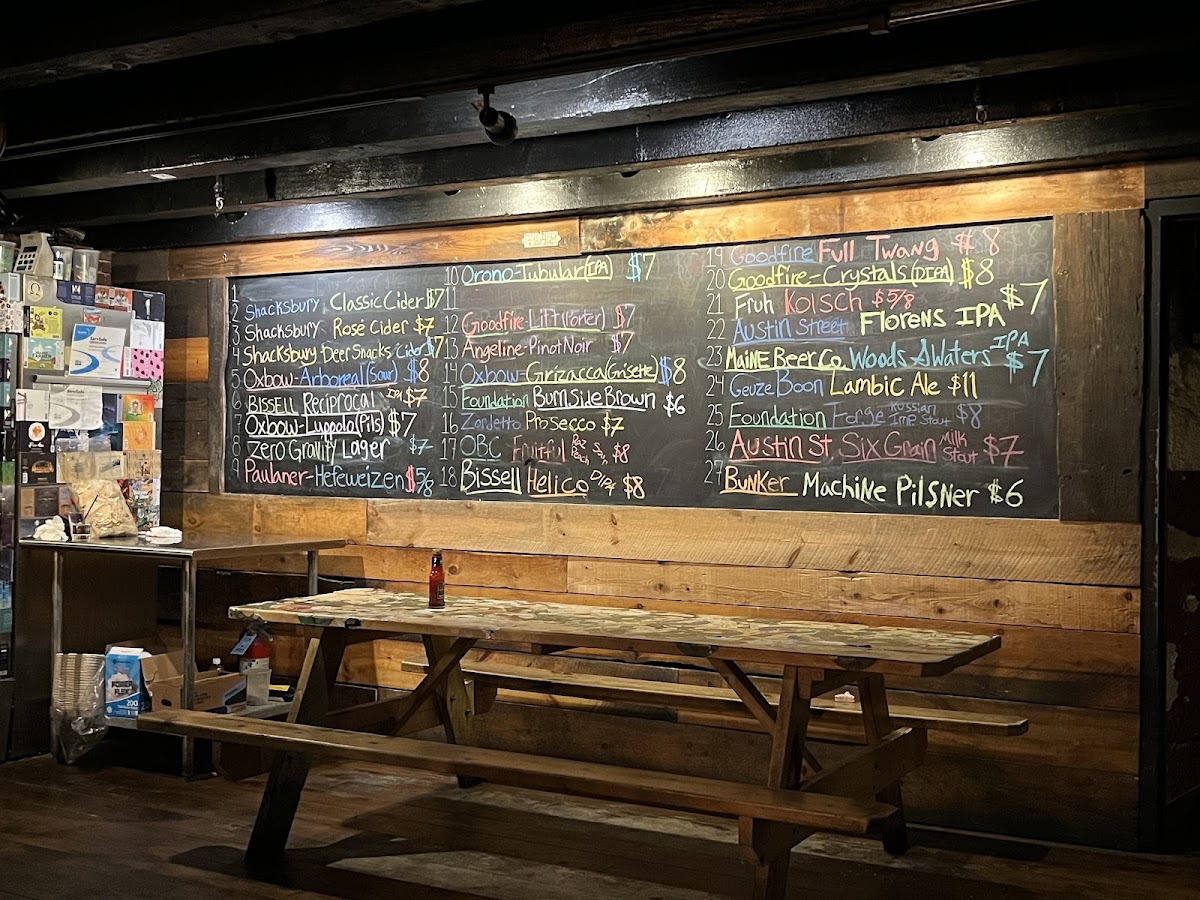 1
2 Shacksbury Classic Cider $7
3 Shacksbury Rosé Cider $7
4 Shacksbury Deer Snacks Cider $7
5 Oxbow-Arboreal (Sour) $8
6 BISSELL Reciprocal IPA $7
7 Oxbow-Luppolo (Pils) $7
8 Zero Gravity Lager $7
9 Paulaner-Hefeweizen $5/8
10 Orono-Tubular (IPA) $7
11
12 Goodfire-Lift (Porter) $7
13 Angeline-Pinot Noir $7
14 Oxbow-Grizacca (Grisette) $8
15 Foundation Burnside Brown $6
16 Zardetto Prosecco $7
17 OBC Fruitful $8
18 Bissell Helico DIPA $8
19 Goodfire Full Twang $8
20 Goodfire-Crystals (DIPA) $8
21 Fruh Kolsch $5/8
22 Austin Street Florens IPA $7
23 MAINE BEER Co. Woods & Waters IPA $7
24 Geuze Boon Lambic Ale $11
25 Foundation Forge Russian Imp. Stout $8
26 Austin St. Six Grain Milk Stout $7
27 Bunker Machine Pilsner $6